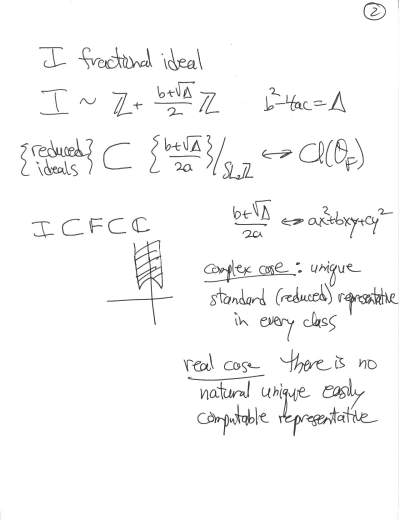 2
I fractional ideal
I ~ ℤ + (b+√Δ)/2 ℤ    b²-4ac = Δ
{reduced ideals} ⊂ {(b+√Δ)/2a}/SL₂ℤ ↔ Cl(O_F)
I ⊂ F ⊂ ℂ
(b+√Δ)/2a ↔ ax²+bxy+cy²
complex case: unique
standard (reduced) representative
in every class
real case there is no
natural unique easily
computable representative